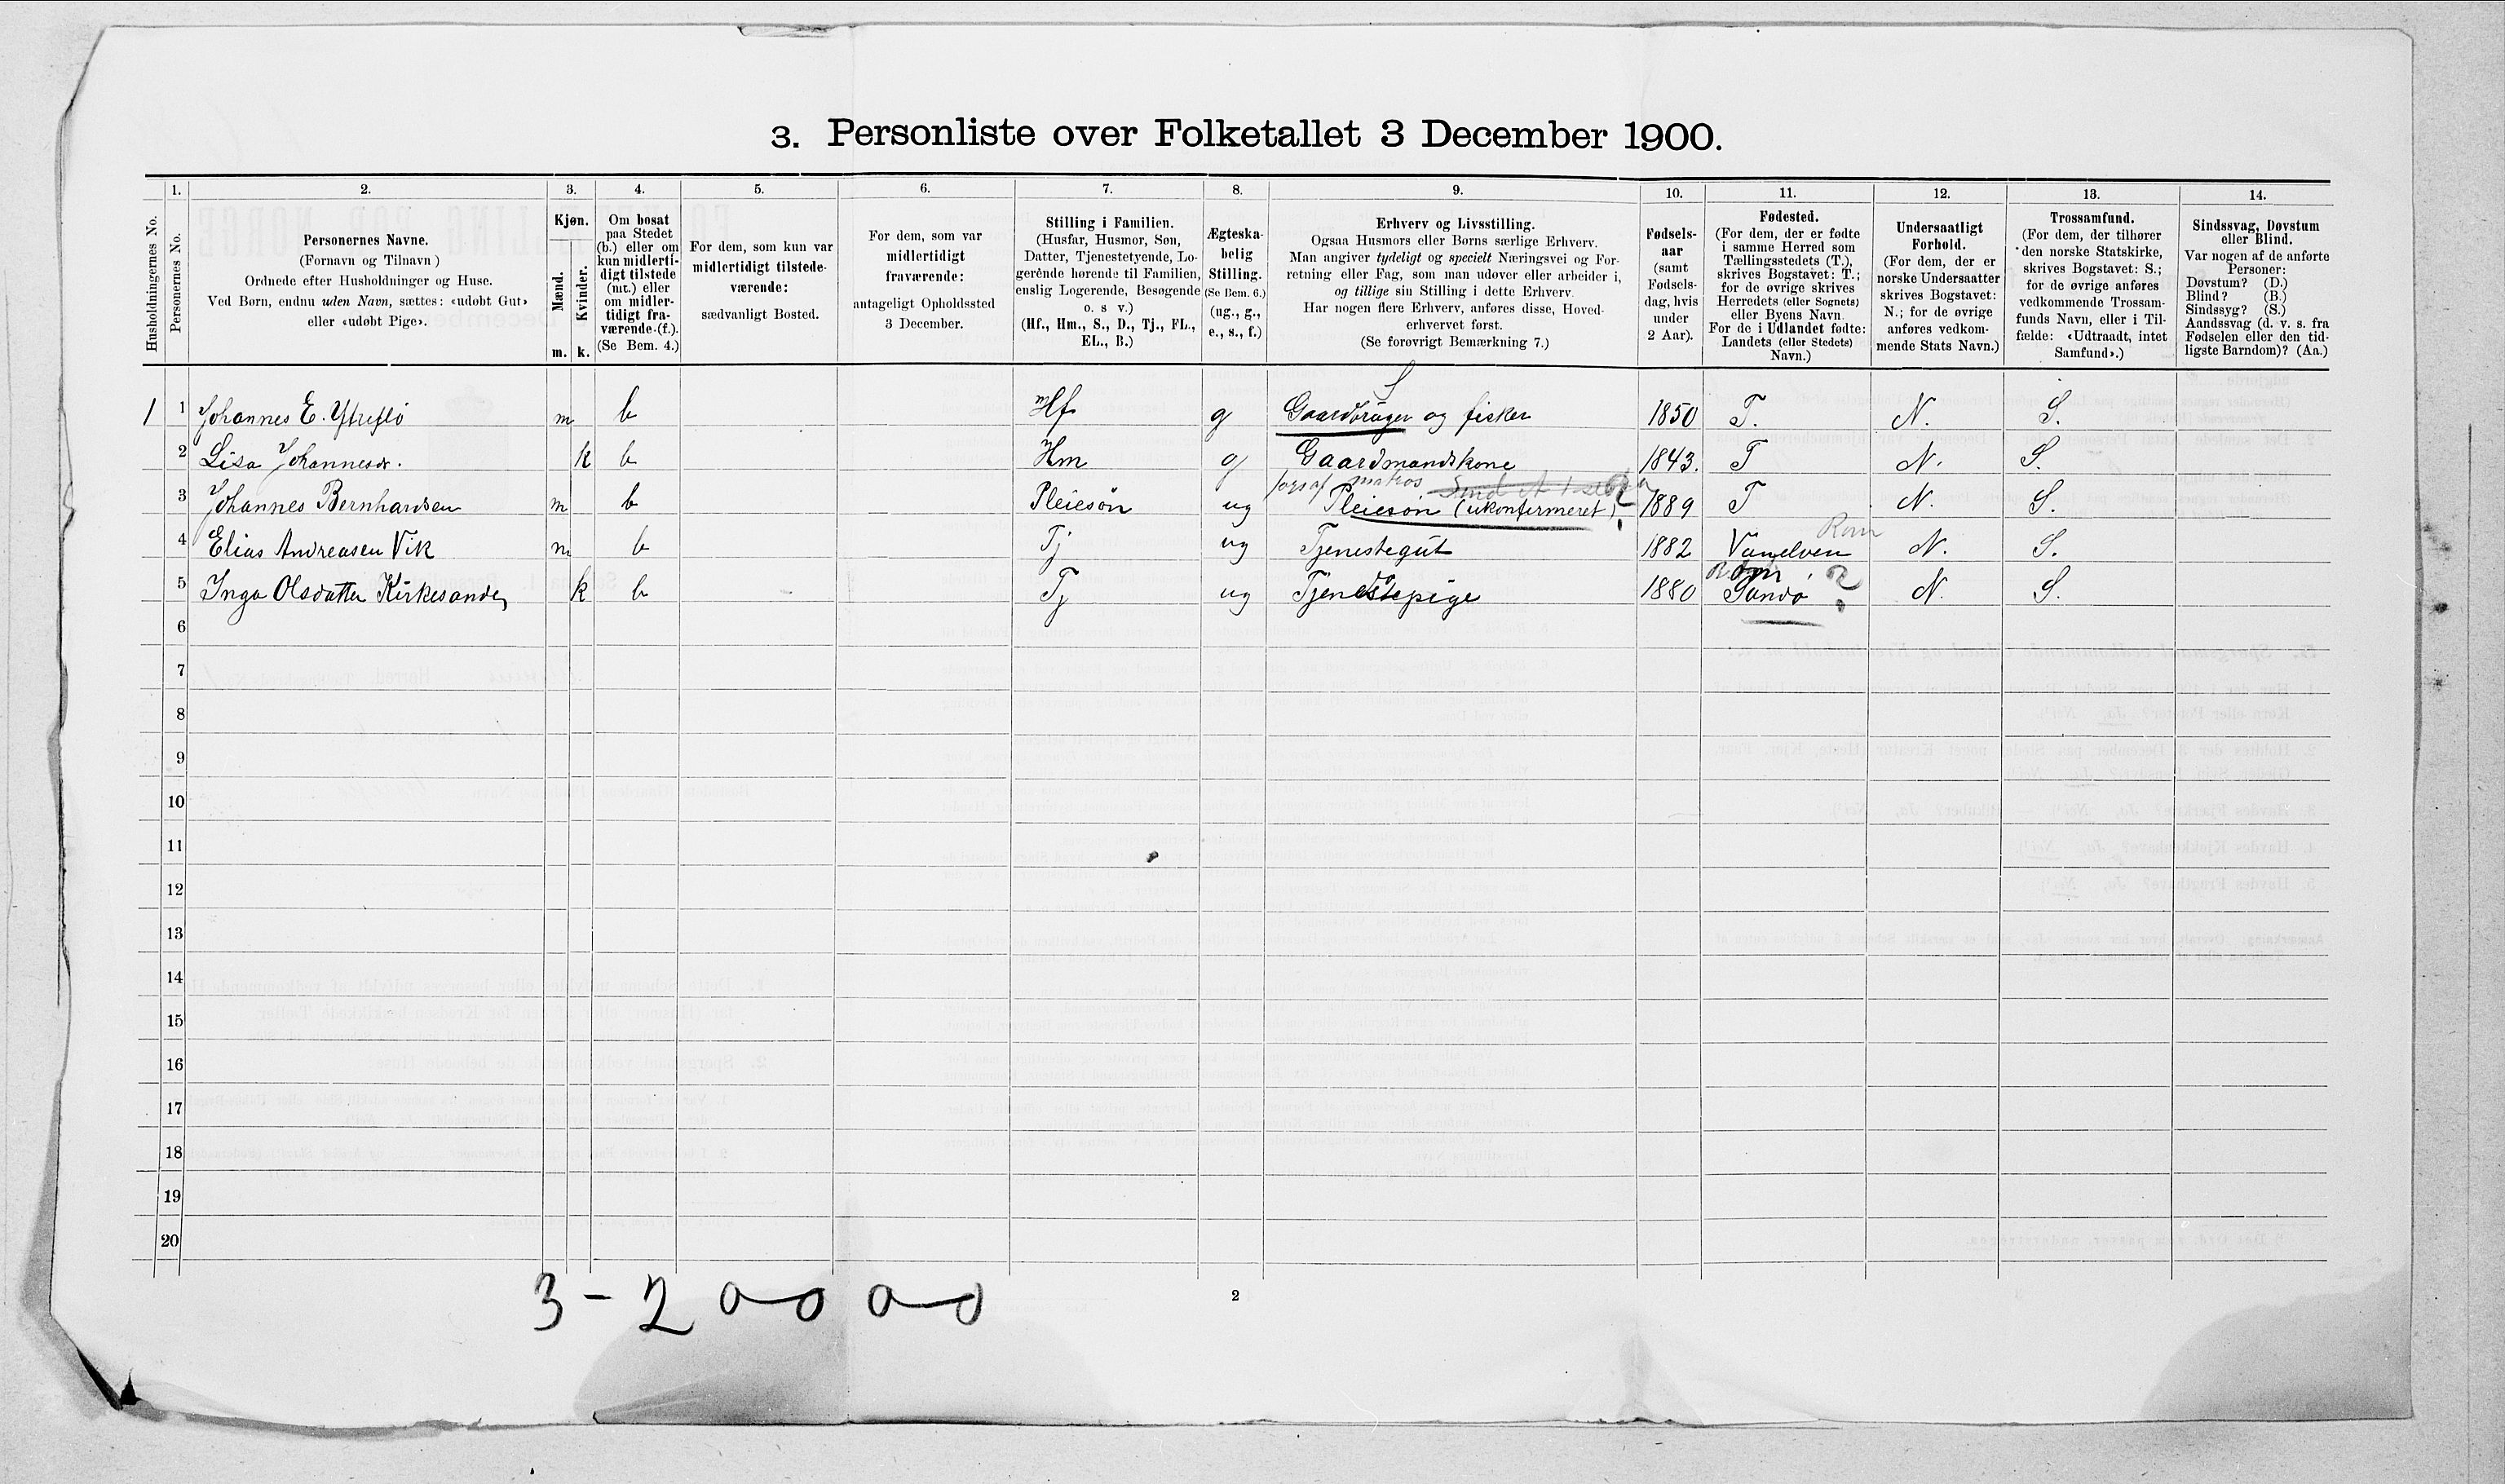 3. Personliste over Folketallet 3 December 1900.
1. 2. 3. 4. 5. 6. 7. 8. 9. 10. 11. 12. 13. 14.
Husholdningernes No.
Personernes No.
Personernes Navne.
(Fornavn og Tilnavn)
Ordnede efter Husholdninger og Huse.
Ved Børn, endnu uden Navn, sættes: «udøbt Gut»
eller «udøbt Pige».
Kjøn.
Mænd.
Kvinder.
m. k.
Om bosat
paa Stedet
(b.) eller om
kun midlerti-
digt tilstede
(mt.) eller
om midler-
tidigt fra-
værende (f.).
(Se Bem. 4.)
For dem, som kun var
midlertidigt tilstede-
værende:
sædvanligt Bosted.
For dem, som var
midlertidigt
fraværende:
antageligt Opholdssted
3 December.
Stilling i Familien.
(Husfar, Husmor, Søn,
Datter, Tjenestetyende, Lo-
gerende hørende til Familien,
enslig Logerende, Besøgende
o. s. v.)
(Hf., Hm., S., D., Tj., FL.,
EL., B.)
Ægteska-
belig
Stilling.
(Se Bem. 6.)
(ug., g.,
e., s., f.)
Erhverv og Livsstilling.
Ogsaa Husmors eller Børns særlige Erhverv.
Man angiver tydeligt og specielt Næringsvei og For-
retning eller Fag, som man udøver eller arbeider i,
og tillige sin Stilling i dette Erhverv.
Har nogen flere Erhverv, anføres disse, Hoved-
erhvervet først.
(Se forøvrigt Bemærkning 7.)
Fødsels-
aar
(samt
Fødsels-
dag, hvis
under
2 Aar).
Fødested.
(For dem, der er fødte
i samme Herred som
Tællingsstedets (T.),
skrives Bogstavet: T.;
for de øvrige skrives
Herredets (eller Sognets)
eller Byens Navn.
For de i Udlandet fødte:
Landets (eller Stedets)
Navn.)
Undersaatligt
Forhold.
(For dem, der er
norske Undersaatter
skrives Bogstavet:
N.; for de øvrige
anføres vedkom-
mende Stats Navn.)
Trossamfund.
(For dem, der tilhører
den norske Statskirke,
skrives Bogstavet: S.;
for de øvrige anføres
vedkommende Trossam-
funds Navn, eller i Til-
fælde: «Udtraadt, intet
Samfund».)
Sindssvag, Døvstum
eller Blind.
Var nogen af de anførte
Personer:
Døvstum? (D.)
Blind? (B.)
Sindssyg? (S.)
Aandssvag (d. v. s. fra
Fødselen eller den tid-
ligste Barndom)? (Aa.)
S
1 1 Johannes E. Ytreflö m b Hf g Gaardbruger og fisker 1850 T. N. S.
2 Lisa Johannesdr. k b Hm g Gaardmandskone 1843. T N. S.
fors af matros
3 Johannes Bernhardsen m b Pleiesön ug Pleiesön (ukonfirmeret) 1889 T N. S.
Rom
4 Elias Andreasen Vik m b Tj ug Tjenestegut 1882 Vanelven N. S.
5 Inga Olsdatter Kirkesande, k b Tj ug Tjenestepige 1880 Sandö ? N. S.
6
7
8
9
10
11
12
13
14
15
16
17
18
19
20
3 - 2 0 0 0 0
2